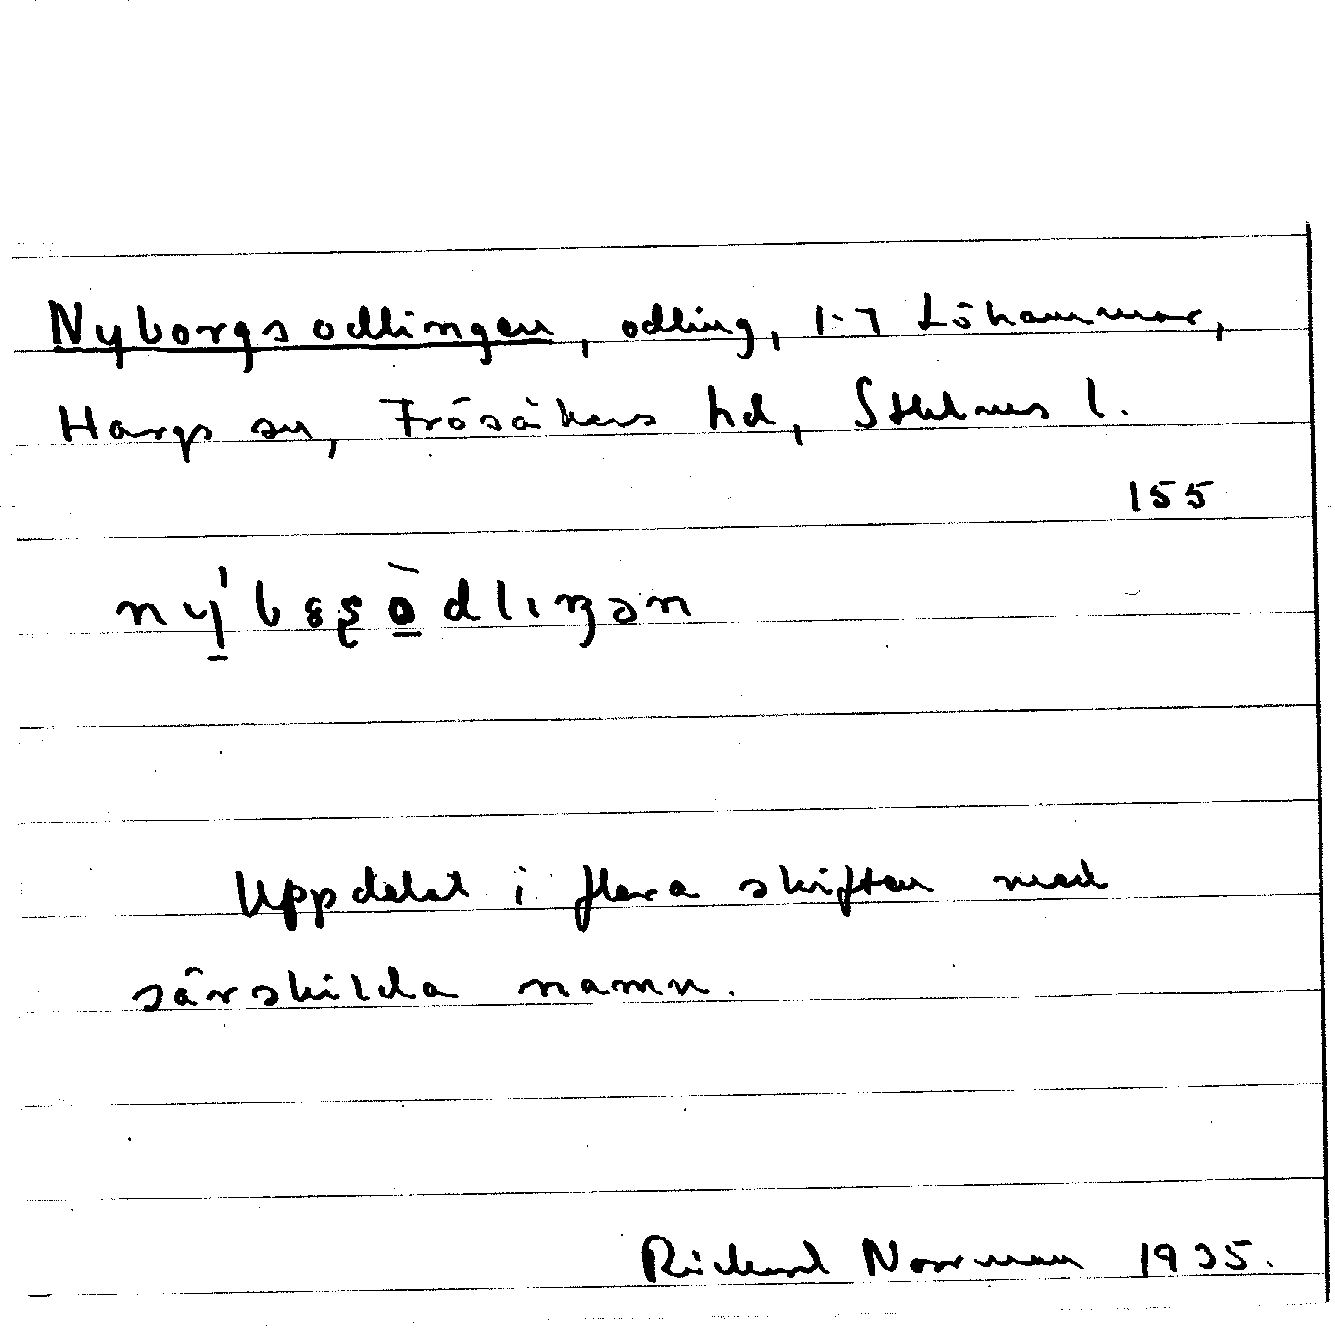 Nyborgsodlingen, odling, 1-7 Löhammar,
Hargs sn, Frösåkers hd, Sthlms l.
155
Uppdelat i flera skiften med
särskilda namn.
Rickard Norrman 1935.